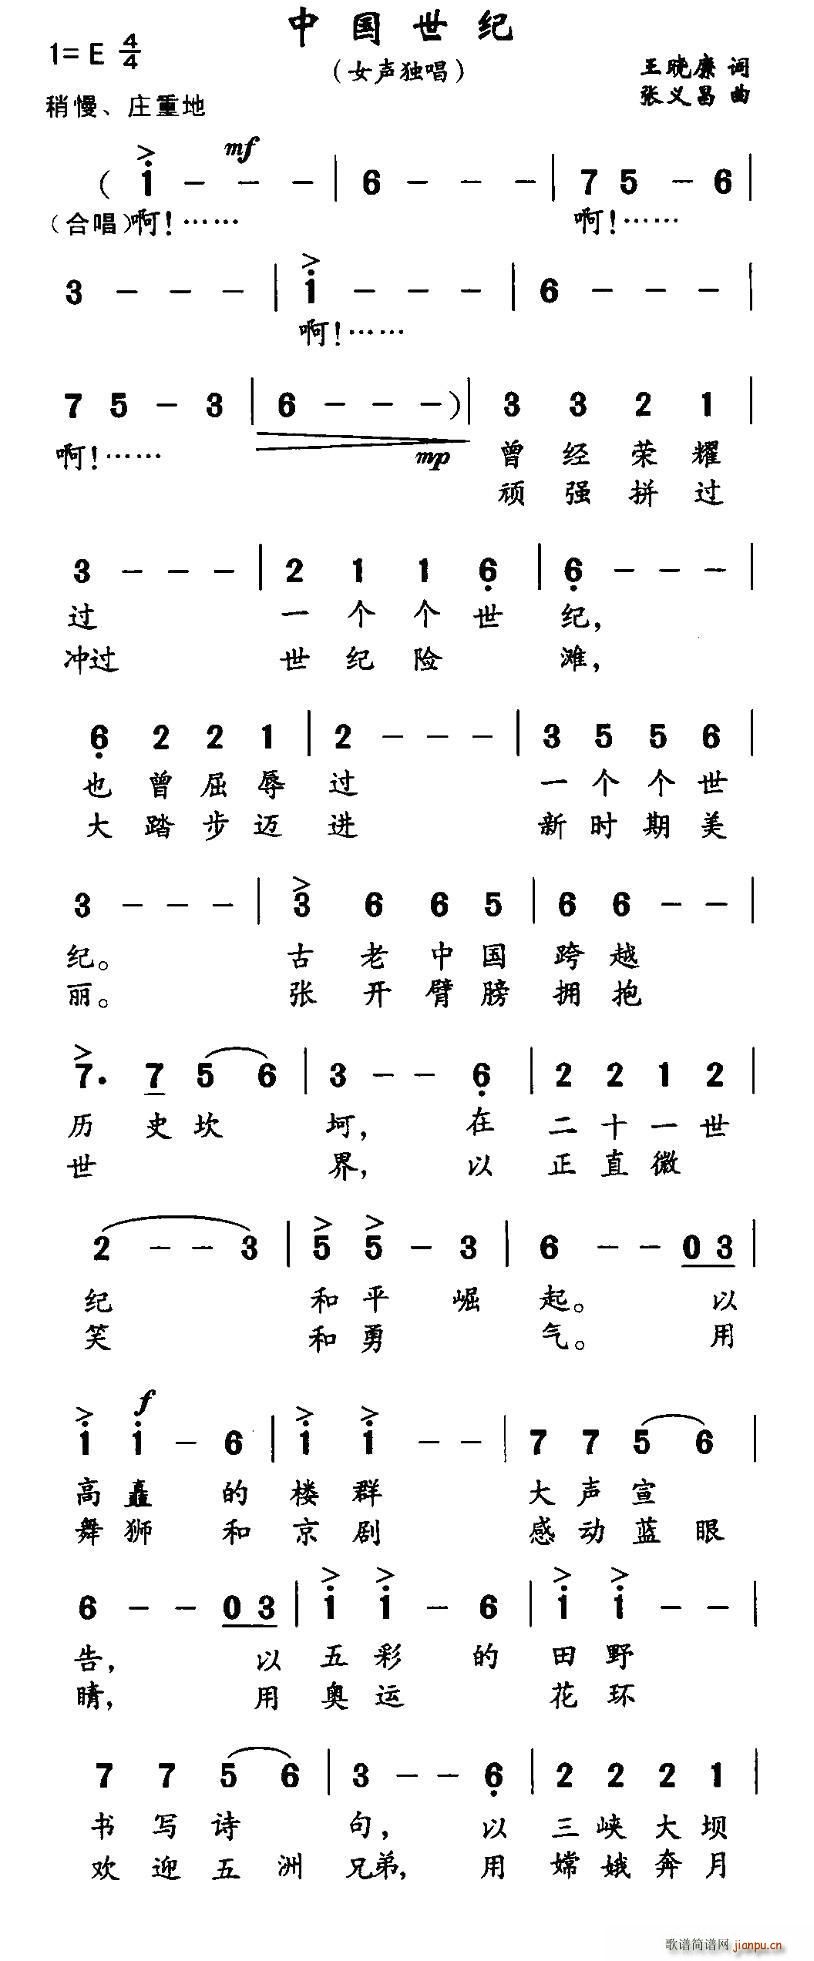 中国世纪
1=E 4/4
（女声独唱）
王晓廉 词
张义昌 曲
稍慢、庄重地
mf
（ i - - - | 6 - - - | 7 5 - 6 |
（合唱）啊！…… 啊！……
3 - - - | i - - - | 6 - - - |
啊！……
7 5 - 3 | 6 - - - ）| 3 3 2 1 |
啊！…… mp 曾经荣耀
顽强拼过
3 - - - | 2 1 1 6̣ | 6̣ - - - |
过 一个个世纪，
冲过 世纪险滩，
6̣ 2 2 1 | 2 - - - | 3 5 5 6 |
也曾屈辱过 一个个世
大踏步迈进 新时期美
3 - - - | 3 6 6 5 | 6 6 - - |
纪。 古老中国跨越
丽。 张开臂膀拥抱
7. 7 5 6 | 3 - - 6̣ | 2 2 1 2 |
历史坎坷，在二十一世
世界，以正直微
2 - - 3 | 5 5 - 3 | 6 - - 0 3 |
纪 和平崛起。以
笑 和勇气。用
f
i i - 6 | i i - - | 7 7 5 6 |
高矗的楼群 大声宣
舞狮和京剧 感动蓝眼
6 - - 0 3 | i i - 6 | i i - - |
告，以五彩的田野
睛，用奥运花环
7 7 5 6 | 3 - - 6̣ | 2 2 2 1 |
书写诗句，以三峡大坝
欢迎五洲兄弟，用嫦娥奔月
歌谱简谱网 jianpu.cn